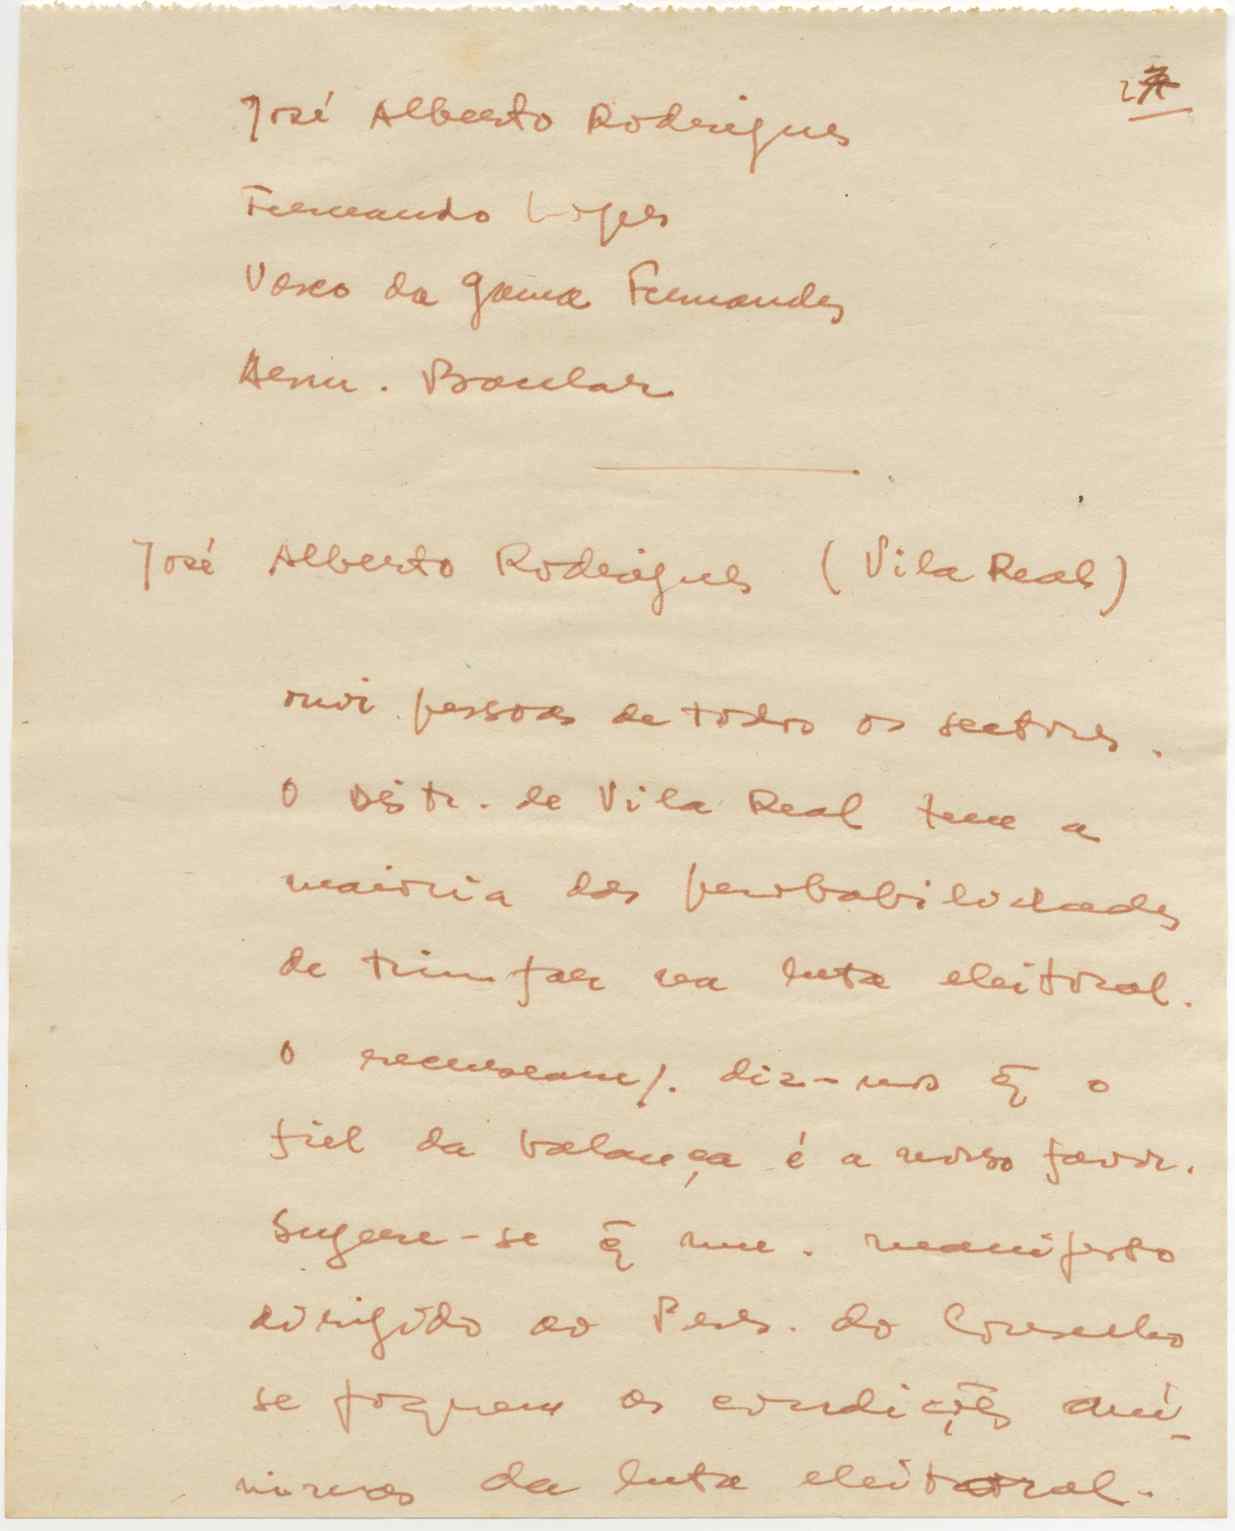 José Alberto Rodrigues
Fernando Lopes
Vasco da Gama Fernandes
Armn. Bacelar
José Alberto Rodrigues (Vila Real)
ouvi pessoas de todos os sectores.
O Distr. de Vila Real tem a
maioria das probabilidades
de triunfar na luta eleitoral.
O recenseam/. diz-nos q̃ o
fiel da balança é a nosso favor.
Sugere-se q̃ num. manifesto
dirigido ao Pres. do Conselho
se foquem as condições mí-
nimas da luta eleitoral.